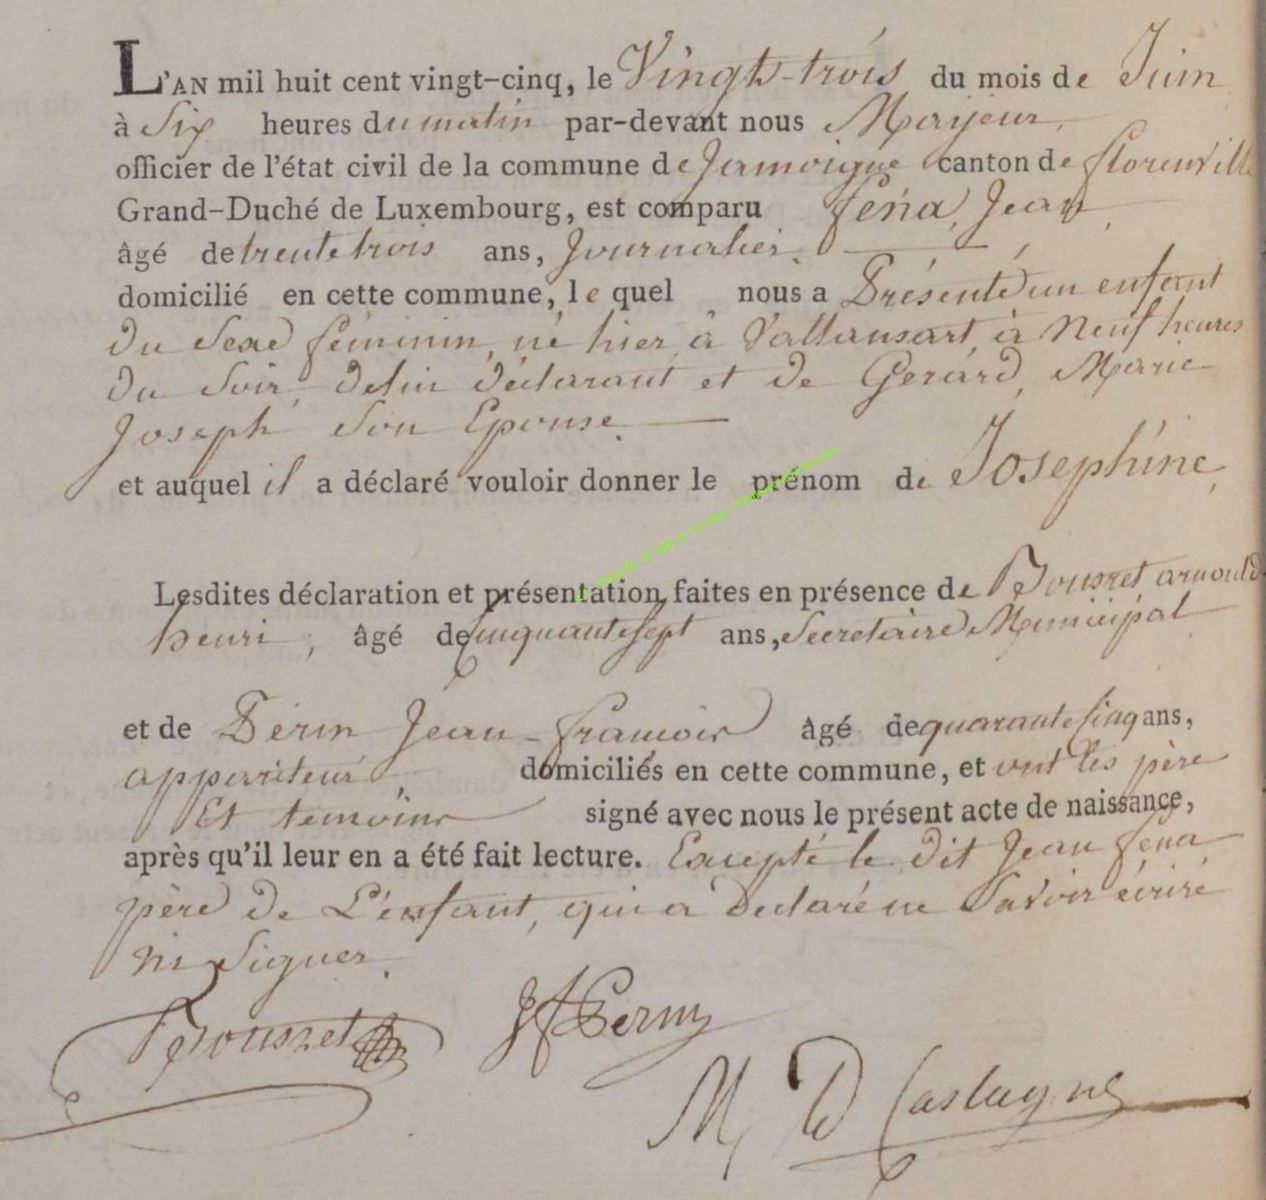 L'AN mil huit cent vingt-cinq, le Vingt-trois du mois de Juin
à Six heures du matin par-devant nous Mayeur,
officier de l'état civil de la commune de Jamoigne canton de florenville
Grand-Duché de Luxembourg, est comparu féna, Jean,
âgé de trente trois ans, Journalier.
domicilié en cette commune, le quel nous a Présenté un enfant
du Sexe féminin, né hier, à Vallansart, à Neuf heures
du Soir, delui déclarant et de Gerard, Marie
Joseph Son Epouse.
et auquel il a déclaré vouloir donner le prénom de Josephine,
Lesdites déclaration et présentation faites en présence de arnould
henri, âgé de Cinquante Sept ans, Secretaire Municipal
et de Jean-françois âgé de quarante Cinq ans,
appariteur, domiciliés en cette commune, et ont les père
Et temoins signé avec nous le présent acte de naissance,
après qu'il leur en a été fait lecture. Excepté le dit Jean féna
père de L'enfant, qui a Declaré ne Savoir écrire
ni Signer.